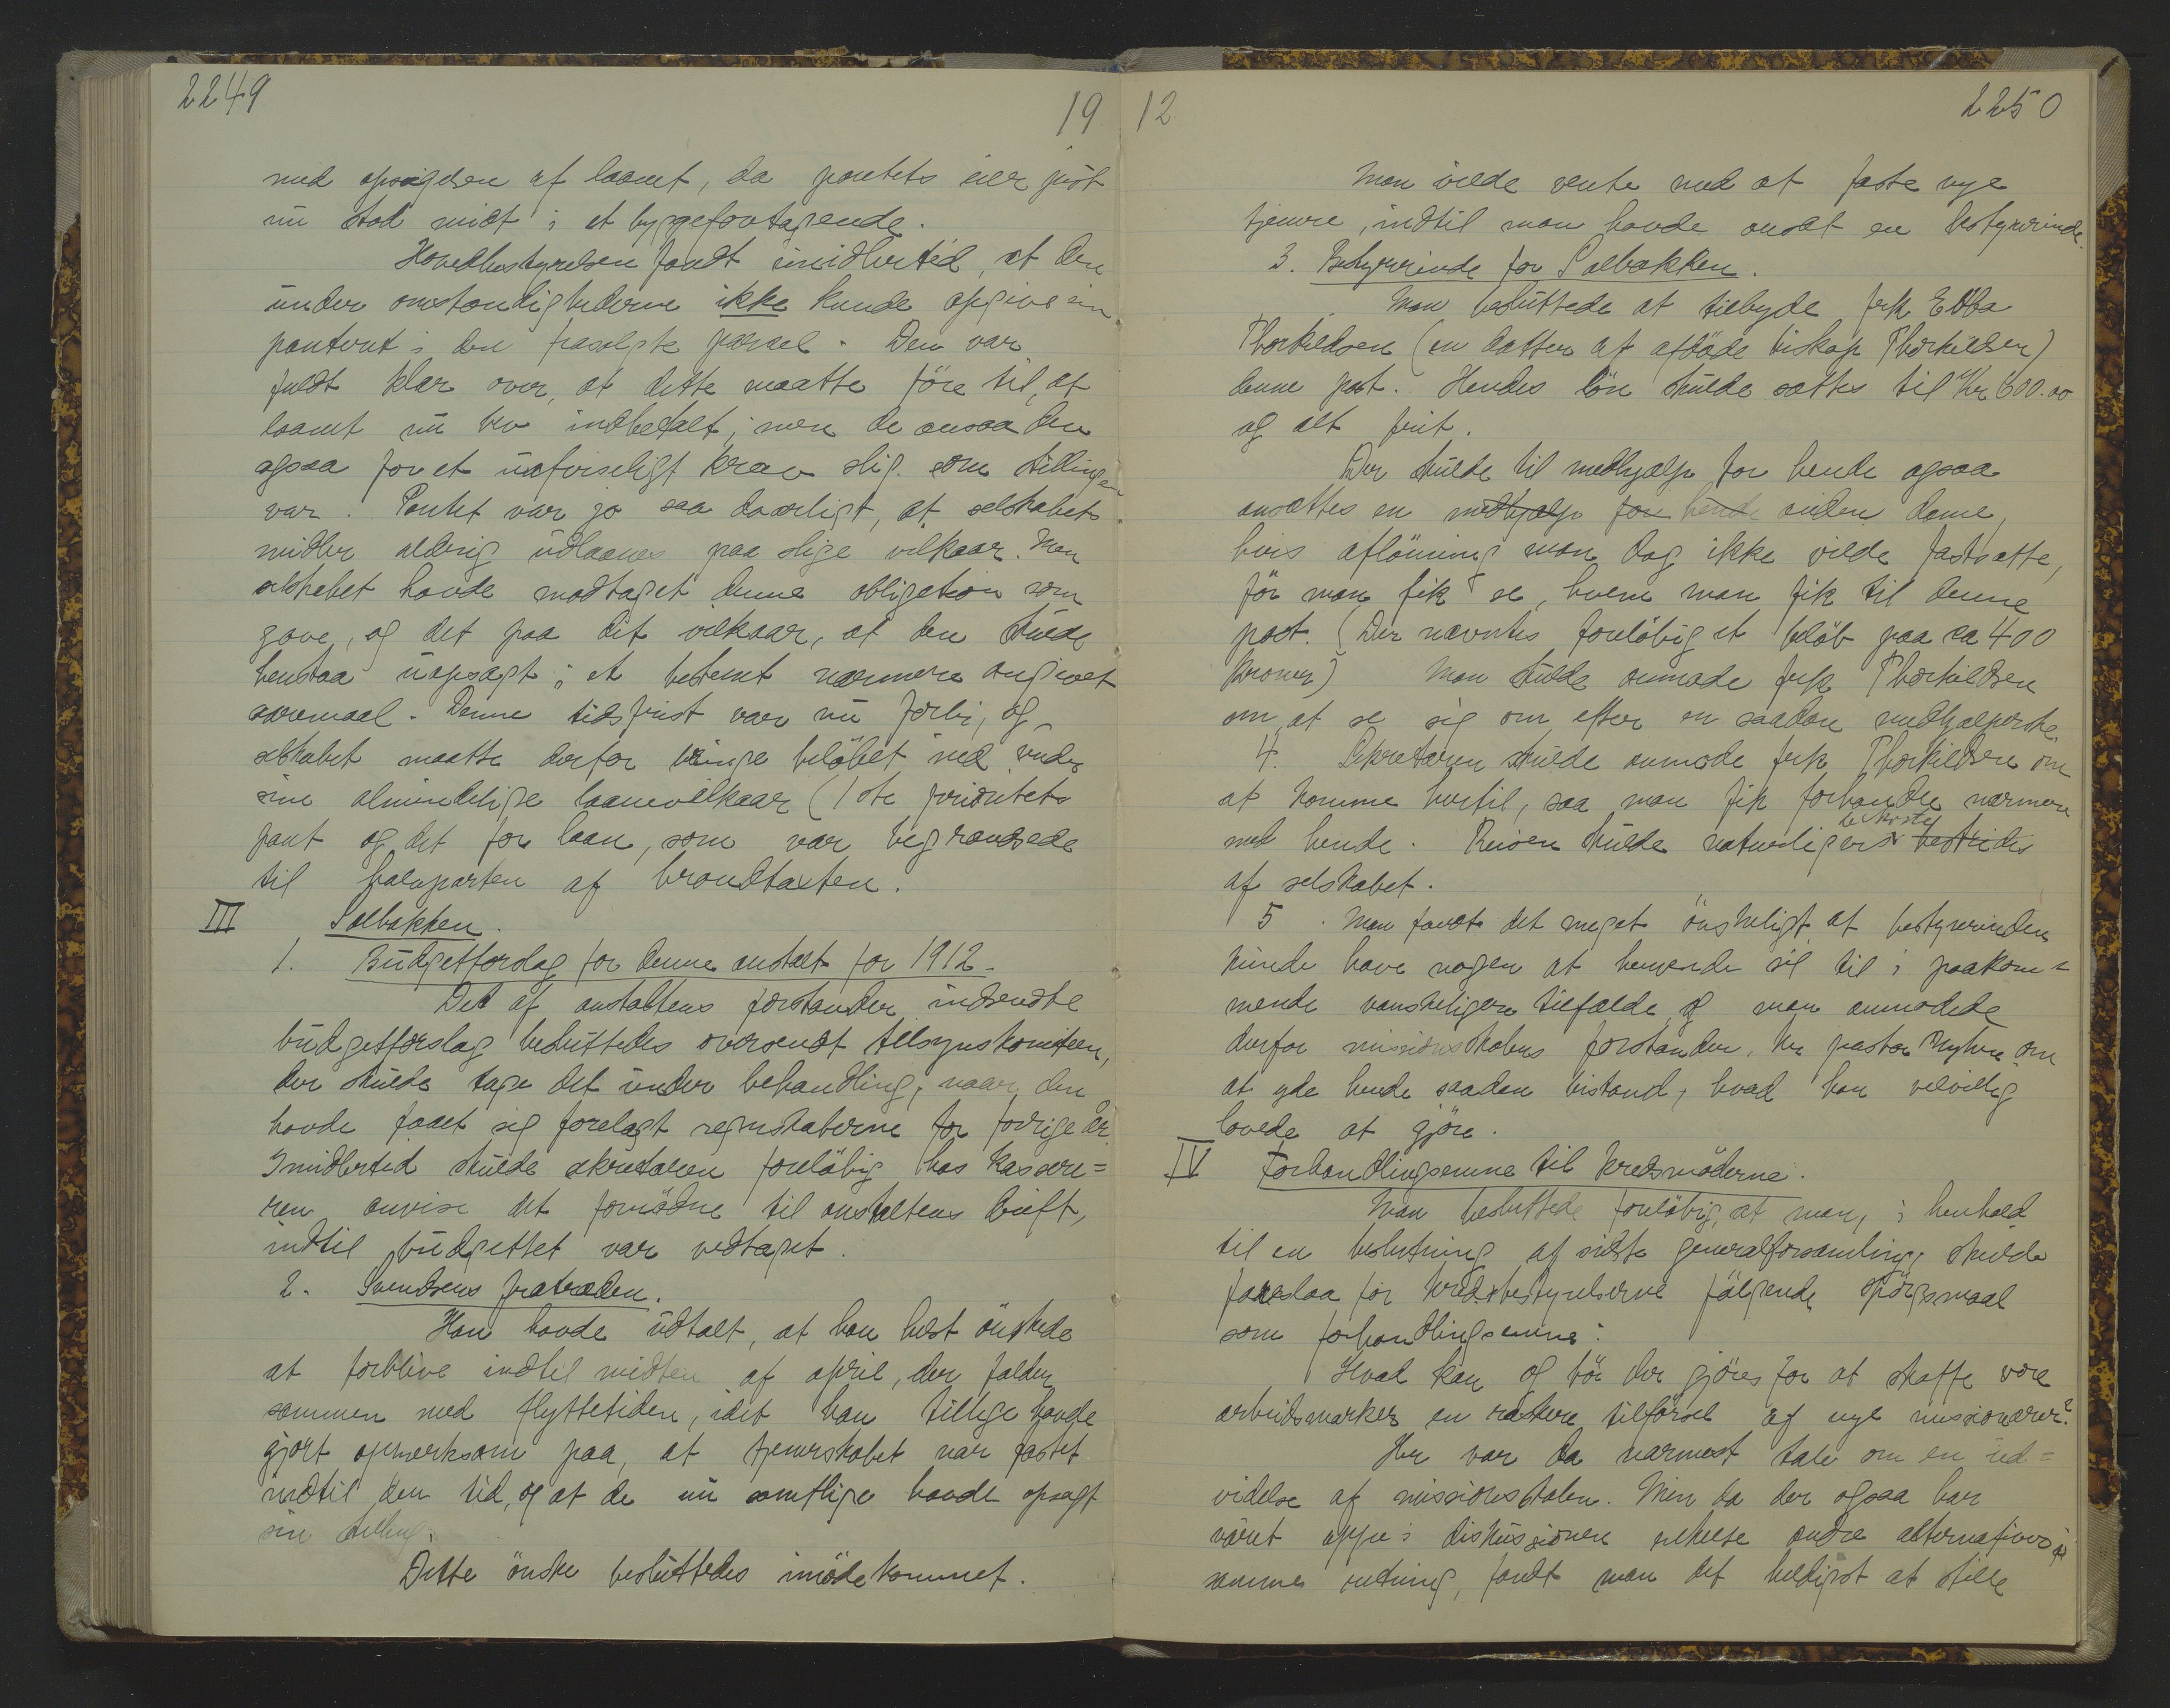 2249
19
med opsigelsen af laanet, da pantets eier just
nu stod midt i et byggeforetagende.
Hovedbestyrelsen fandt imidlertid, at den
under omstændighederne ikke kunde opgive sin
panteret i den frasolgte parcel. Den var
fuldt klar over, at dette maatte före til, at
laanet nu blev indbetalt; men de ansaa den
ogsaa for et uafviseligt krav slig som stillingen
var. Pantet var jo saa daarligt, at selskabets
midler aldrig udlaanes paa slige vilkaar. Men
selskabet havde modtaget denne obligation som
gave, og det paa det vilkaar, at den skulde
henstaa uopsagt i et bestemt nærmere angivet
aaremaal. Denne tidsfrist var nu forbi, og
selskabet maatte derfor bringe belöbet ind under
sine almindelige laanevilkaar (1ste prioritets
pant og det for laan, som var begrændsede
til halvparten af brandtaxten.
III Solbakken.
1. Budgetforslag for denne anstalt for 1912.
Det af anstaltens forstander indsendte
budgetforslag besluttedes oversendt tilsynskomiteen,
der skulde tage det under behandling, naar den
havde faaet sig forelagt regnskaberne for forrige år.
Imidlertid skulde sekretæren foreläbig hos kassere=
ren anvise det fornödne til anstaltens drift,
indtil budgettet var vedtaget.
2. Svendsens fratræden.
Han havde udtalt, at han helst önskede
at forblive indtil midten af april, der falder
sammen med flyttetiden, idet han tillige havde
gjort opmerksom paa, at tjenerskabet var fæstet
indtil den tid, og at de nu samtlige havde opsagt
sin stilling.
Dette önske besluttedes imödekommet.
12
2250
Man vilde vente med at fæste nye
tjenere, indtil man havde ansat en bestyrerinde.
3. Bestyrerinde for Solbakken.
Man besluttede at tilbyde frk. Ebba
Thorkildsen (en datter af afdöde biskop Thorkildsen)
denne post. Hendes lön skulde sættes til Kr. 600.00
og alt frit.
Der skulde til medhjælp for hende ogsaa
ansættes en medhjælp for hende anden dame,
hvis aflönning man dog ikke vilde fastsætte,
för man fik se, hvem man fik til denne
post. (Der nævntes foreläbig et belöb paa ca 400
kroner) Man skulde anmode frk. Thorkildsen
om at se sig om efter en saadan medhjælperske.
4. Sekretæren skulde anmode frk. Thorkildsen om
at komme hertil, saa man fik forhandle nærmere
med hende. Reisen skulde naturligvis bekostes bestrides
af selskabet.
5. Man fandt det meget önskeligt at bestyrerinden
kunde have nogen at henvende sig til i paakom=
mende vanskeligere tilfælde og man anmodede
derfor missionsskolens forstander, hr pastor Nyhus om
at yde hende saadan bistand, hvad han velvillig
lovede at gjöre.
IV Forhandlingsemne til kredsmöderne.
Man besluttede foreläbig, at man, i henhold
til en beslutning af sidste generalforsamling, skulde
foreslaa for kredsbestyrelserne fölgende spörgsmaal
som forhandlingsemne:
Hvad kan og bör der gjöres for at skaffe vore
arbeidsmarker en raskere tilförsel af nye missionærer?
Her var da nærmest tale om en ud=
videlse af missionsskolen. Men da der ogsaa har
været oppe i diskussionen enkelte andre alternativer i
samme retning, fandt man det heldigst at stille